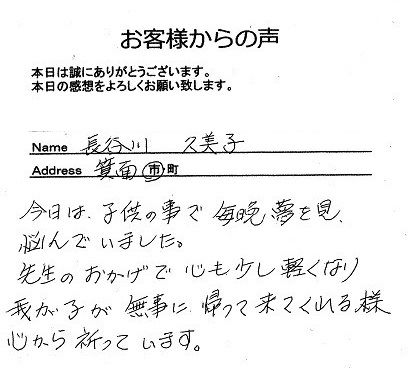 お客様からの声
本日は誠にありがとうございます。
本日の感想をよろしくお願い致します。
Name 長谷川 久美子
Address 箕面 市・町
今日は、子供の事で毎晩夢を見、
悩んでいました。
先生のおかげで心も少し軽くなり
我が子が無事に帰って来てくれる様
心から祈っています。